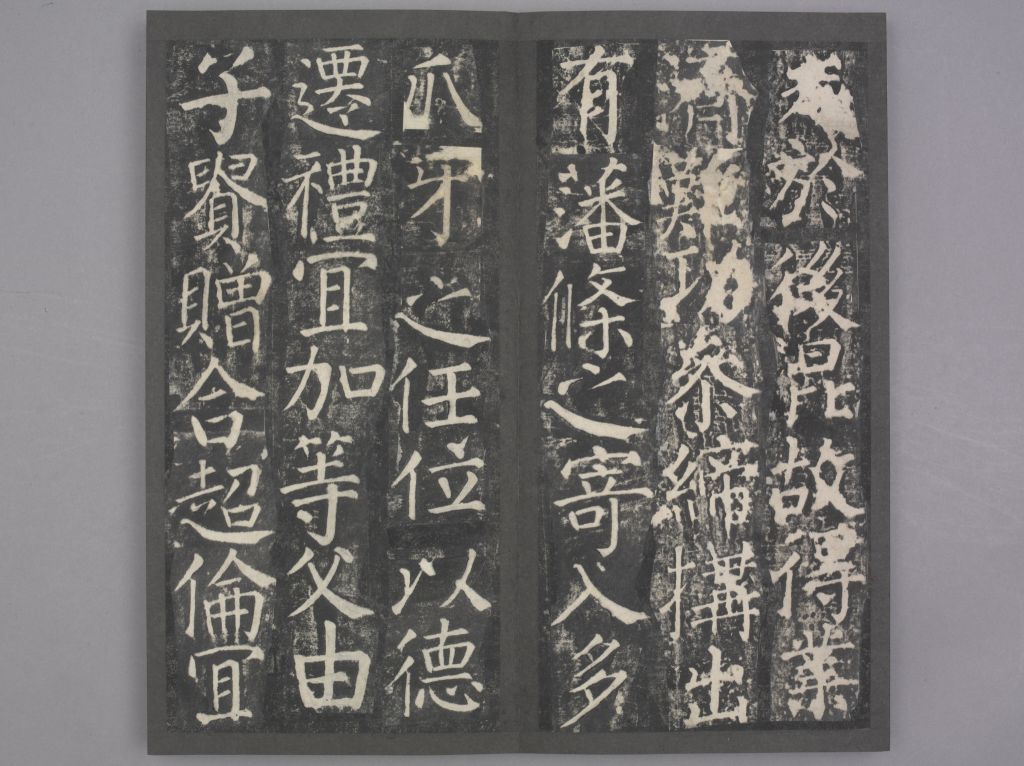 美於後昆故得業
濟難功參締搆出
有藩條之寄入多
爪牙之任位以德
遷禮冝加等父由
子貴贈合超倫冝